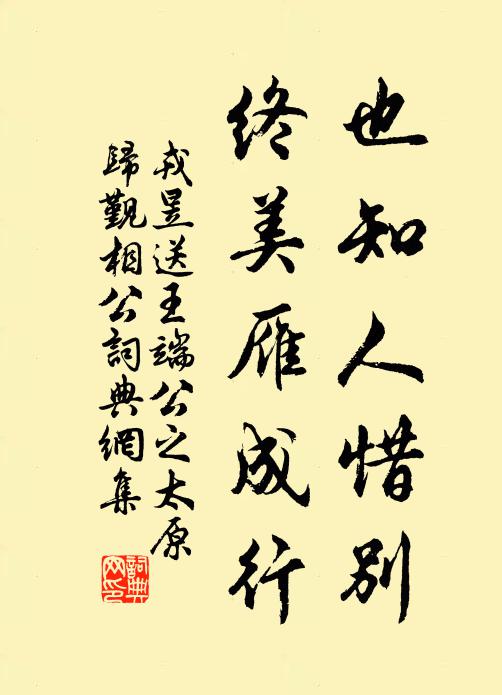 也知人惜别
终美雁成行
戎昱送王端公之太原
归觐相公词典网集
词典网印